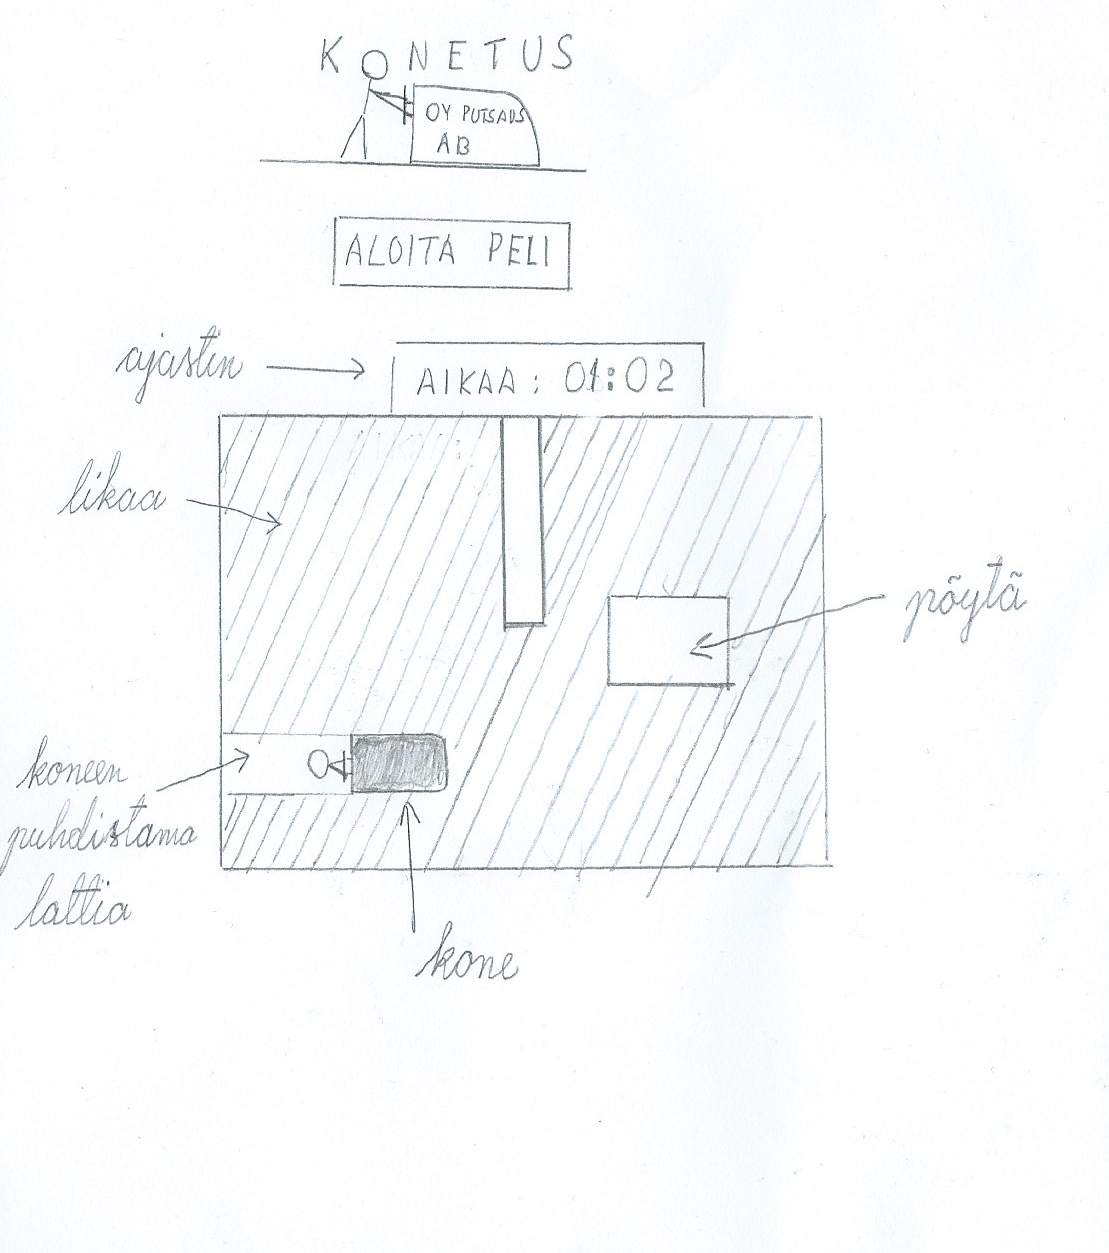 KONETUS
OY PUTSAUS
AB
ALOITA PELI
ajastin
AIKAA: 01:02
likaa
pöytä
koneen
puhdistama
lattia
kone